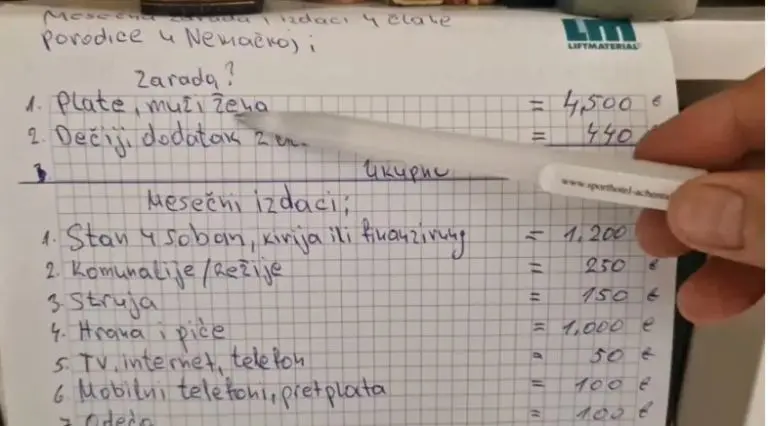 Mesečna zarada i izdaci 4 člane
porodice u Nemačkoj;
LM
LIFTMATERIAL
Zarada?
1. Plate, muž i žena = 4,500 €
2. Dečiji dodatak 2 = 440 €
3. Ukupno
www.sporthotel-achensee
Mesečni izdaci;
1. Stan 4 soban, kirija ili finanzirung = 1,200
2. Komunalije/Režije = 250 €
3. Struja = 150 €
4. Hrana i piće = 1,000 €
5. TV, internet, telefon = 50 €
6 Mobilni telefoni, pretplata = 100 €
7. Odeća = 100 €